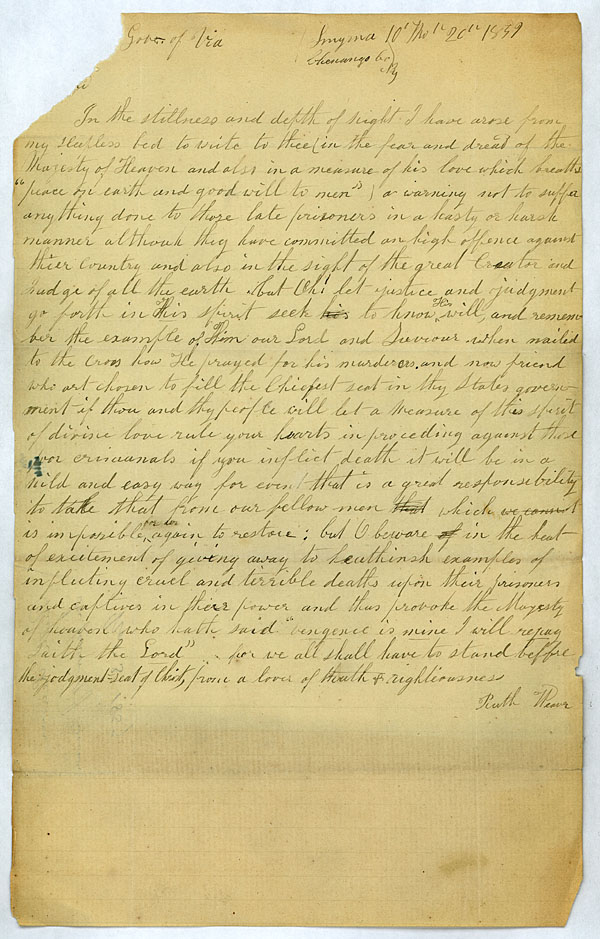 Govr. of Via
Smyrna 10th Mo 20th 1859
Chenango Co
NY
In the stillness and depth of night I have arose from
my sleepless bed to write to thee (in the fear and dread of the
Majesty of Heaven and also in a measure of his love which breaths
"peace on earth and good will to men") a warning not to suffer
anything done to those late prisoners in a hasty or harsh
manner althouh they have committed an high offence against
thier Country and also in the sight of the great Creator and
Judge of all the earth but Oh! let justice and judgment
go forth in His spirit seek his to know His will, and remem-
ber the example of Him our Lord and Saviour when nailed
to the Cross how He prayed for his murderers. and now friend
who art chosen to fill the Chiefest seat in thy States govern-
ment if thou and thy people will let a measure of this spirit
of divine love rule your hearts in proceding against those
poor crimanals if you inflict death it will be in a
mild and easy way for even that is a great responsibility
to take that from our fellow men that which we cannot
is imposible for us again to restore; but O beware of in the heat
of excitement of giveing away to heathinsh examples of
inflicting cruel and terrible deaths upon their prisoners
and captives in their power and thus provoke the Majesty
of heaven who hath said "vengence is mine I will repay
saith the Lord" for we all shall have to stand before
the judgment-seat of Christ, from a lover of truth & rightiousness
Ruth Weaver